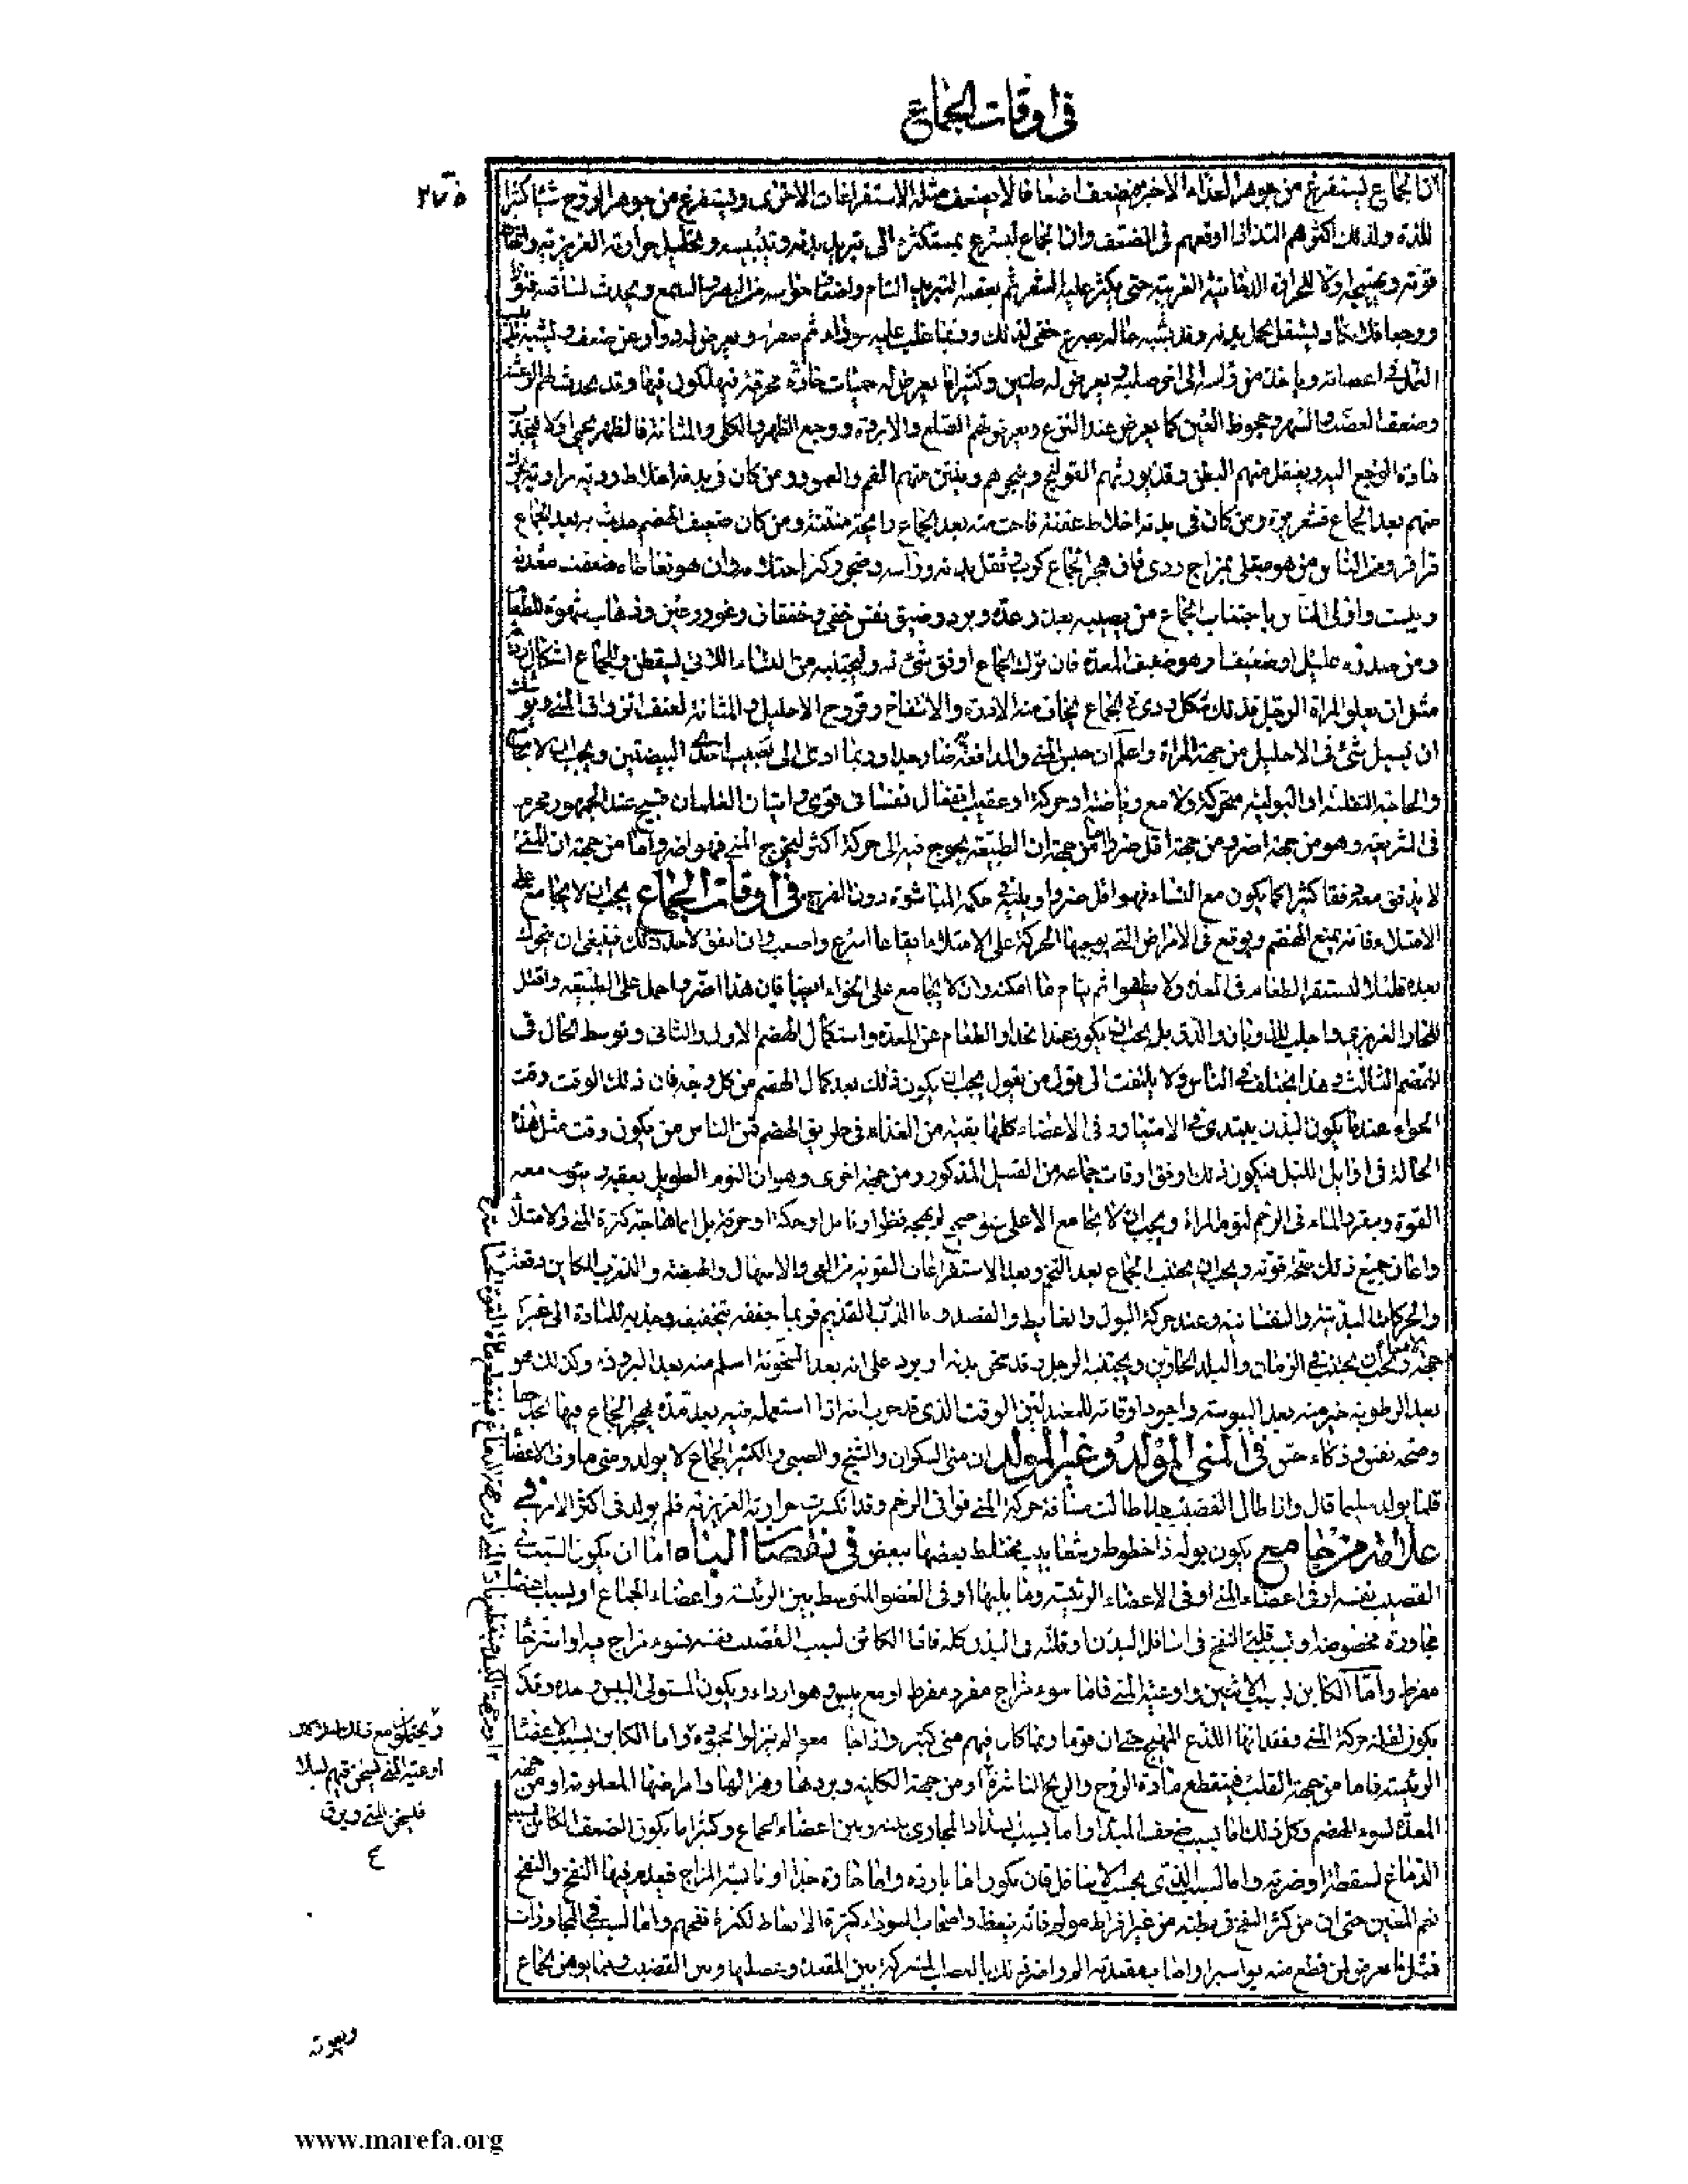 في اوقات الجماع
ان الجماع ليستفرغ من جوهر الغذاء الاخير فيضعف اضعافا لا يضعف مثله الاستفراغات الاخرى ويستفرغ من جوهر الروح شيئا كثيرا
للذة ولذلك اكثرهم التذاذا اوقعهم في الضعف وان الجماع ليسرع بمستكثره الى تبريد بدنه وتيبيسه وتحليل حرارته الغريزية وانهاك
قوته وتهييج اولا للحرارة الدخانية الغريبة حتى يكثر عليه الشعر ثم يعقبه التبريد التام واضعاف حواسه من البصر والسمع ويحدث لساقيه فتورا
ووجعا فلا يكاد يستقل بحمل بدنه وقد يشبه حاله بصرع خفي لذلك وربما غلب عليه سوداء ثم صفراء ويعرض له دوار عن ضعف وشبيه
النمل في اعضائه وياخذ من راسه الى اخر صلبه ويعرض له طنين وكثيرا ما يعرض له حميات حادة محرقة فيهلكون فيها وقد يحدث لهم الرعشة
وضعف العصب والسهر وجحوظ العين كما يعرض عند النزع ويعرض لهم الصلع والابردة ووجع الظهر والكلى والمثانة فالظهر يحمى اولا فيجذب
مادة الوجع اليه ويعتقل منهم البطن وقد يورثهم القولنج ويبخرهم وينتن منهم الفم والعمور ومن كان في بدنه اخلاط ردية مرارية تحرك
منهم بعد الجماع قشعريرة ومن كان في بدنه اخلاط عفنة فاحت منه بعد الجماع رائحة منتنة ومن كان ضعيف الهضم حدث به بعد الجماع
قراقر ومن الناس من هو مبتلى بمزاج ردى فان هجر الجماع كرب وثقل بدنه وراسه وضجر وكثر احتلامه وان هو تعاطاه ضعفت معدته
ويبست واولى الناس باجتناب الجماع من يصيبه بعده رعدة وبرد وضيق نفس خفي وخفقان وغور عين وذهاب شهوة للطعام
ومن صدره عليل او ضعيف او هو ضعيف المعدة فان ترك الجماع اوفق شيء له وليجتنبه من النساء اللاتي يسقطن وللجماع اشكال ردية
مثل ان يعلو المراة الرجل فذلك شكل ردى للجماع يخاف منه الادرة والانتفاخ وقروح الاحليل والمثانة لعنف انزراق المني ويوشك
ان يسيل شيء في الاحليل من جهة المراة واعلم ان حبس المني والمدافعة له ضار جدا وربما ادى الى تعييب احدى البيضتين ويجب ان لا يجامع
والحاجة الثفلية او البولية متحركة ولا مع رياضة او حركة او عقيب انفعال نفساني قوي واتيان الغلمان قبيح عند الجمهور محرم
في الشريعة وهو من جهة اضر ومن جهة اقل ضررا اما من جهة ان الطبيعة يحوج فيه الى حركة اكثر ليخرج المني فهو اضر واما من جهة ان المني
لا يتدفق معه دفقا كثيرا كما يكون مع النساء فهو اقل ضررا ويليه في حكمه المباشرة دون الفرج في اوقات الجماع يجب ان لا يجامع على
الامتلاء فانه يمنع الهضم ويوقع في الامراض التي يوجبها الحركة على الامتلاء ايقاعا اسرع واصعب وان اتفق لاحد ذلك فينبغي ان يتحرك
بعده قليلا ليستقر الطعام في المعدة ولا يطفوا ثم ينام ما امكنه وان لا يجامع على الخواء ايضا فان هذا اضر واحمل على الطبيعة واقتل
للحار الغريزي واجلب للذوبان والدق بل يجب ان يكون عند انحدار الطعام عن المعدة واستكمال الهضم الاول والثاني وتوسط الحال في
الهضم الثالث وهذا يختلف في الناس ولا يلتفت الى قول من يقول يجب ان يكون ذلك بعد كمال الهضم من كل وجه فان ذلك الوقت وقت
الخواء عندما يكون البدن يبتدى في الامتيار وفي الاعضاء كلها بقية من الغذاء في طريق الهضم فمن الناس من يكون وقت مثل هذه
الحالة في اوايل الليل فيكون ذلك اوفق اوقات جماعه من القبيل المذكور ومن جهة اخرى وهو ان النوم الطويل يعقبه ويثوب معه
القوة ويقر الماء في الرحم لنوم المراة ويجب ان لا يجامع الا على شبق صحيح لم يهيجه نظر او تامل او حكة او حرقة بل انما هاجته كثرة المني والامتلاء
واعان جميع ذلك صحة قوته ويجب ان يجتنب الجماع بعد التخم وبعد الاستفراغات القوية من القي والاسهال والهيضة والذرب الكاين دفعة
والحركات البدنية والنفسانية وعند حركة البول والغايط والفصد واما الذرب القديم فربما جففه بتجفيفه وجذبه للمادة الى غير
جهة الامعاء ويجب ان يجتنب في الزمان والبلد الحارين ويجتنب الرجل وقد سخن بدنه او برد على انه بعد السخونة اسلم منه بعد البرودة وكذلك هو
بعد الرطوبة خير منه بعد اليبوسة واجود اوقاته للمعتدلين الوقت الذي قد جرب انه اذا استعمله فيه بعد مدة هجر الجماع فيها يجد خفا
وصحة نفس وذكاء حس في المني المولد وغير المولد ان مني السكران والشيخ والصبي والكثير الجماع لا يولد ومني ماوف الاعضاء
قلما يولد سليما قال واذا طال القضيب جدا طالت مسافة حركة المني فوافى الرحم وقد انكسرت حرارته الغريزية فلم يولد في اكثر الامر في
علامة من جامع يكون بوله ذا خطوط وشعايب مختلط بعضها ببعض في نقصان الباه اما ان يكون السبب في
القضيب نفسه او في اعضاء المني او في الاعضاء الرئيسة وما يليها او في العضو المتوسط بين الرئيسة واعضاء الجماع او بسبب اعضاء
مجاورة مخصوصة او بسبب قلة النفخ في اسافل البدن او قلته في البدن كله فاما الكائن بسبب القضيب نفسه فسوء مزاج فيه او استرخاء
مفرط واما الكاين بسبب الانثيين واوعية المني فاما سوء مزاج مفرد مفرط او مع يبس وهو اردا ويكون المستولى اليبس وحده وقد
يكون لقلة حركة المني وفقدانها اللذع المهيج حتى ان قوما ربما كان فيهم مني كثير واذا جامعوا لم ينزلوا لجموده واما الكاين بسبب الاعضاء
الرئيسة فاما من جهة القلب فينقطع مادة الروح والريح الناشرة او من جهة الكلية وبردها وهزالها وامراضها المعلومة او من جهة
المعدة لسوء الهضم وكل ذلك اما بسبب ضعف المبدا واما بسبب انسداد المجاري بينه وبين اعضاء الجماع وكثيرا ما يكون الضعف الكاين بسبب
الدماغ لسقطة او ضربة واما السبب الذي بحسب الاسافل فان يكون اما باردة واما حارة جدا او يابسة المزاج فيعدم فيها النفخ والنفخ
نعم المعين حتى ان من كثر النفخ في بطنه من غير افراط مولم فانه ينعظ واصحاب السوداء كثيرة الانعاظ لكثرة نفخهم واما السبب في المجاورات
فمثل ما يعرض لمن قطع منه بواسير او اصاب مقعدته الم واضر ذلك بالعصب المشترك بين المقعدة وعضلها وبين القضيب ومما يوهن الجماع
ويعوقه
www.marefa.org